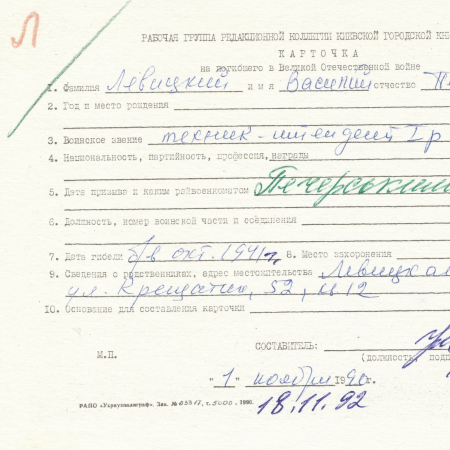 Л
РАБОЧАЯ ГРУППА РЕДАКЦИОННОЙ КОЛЛЕГИИ КИЕВСКОЙ ГОРОДСКОЙ КНИ
КАРТОЧКА
на погибшего в Великой Отечественной войне
1. Фамилия Левицкий имя Василий отчество П
2. Год и место рождения
3. Воинское звание техник-интендент I р
4. Национальность, партийность, профессия, награды
5. Дата призыва и каким райвоенкоматом Печерським
6. Должность, номер воинской части и соединения
7. Дата гибели б/в окт. 1941 г. 8. Место захоронения
9. Сведения о родственниках, адрес местожительства Левицкая
ул. Крещатик, 52, к 12
10. Основание для составления карточки
СОСТАВИТЕЛЬ:
(должность, подп
М.П.
"1" ноября 1990г.
РАПО «Укрвузполиграф». Зак. № 03317, т. 5000, 1990.
18.11.92